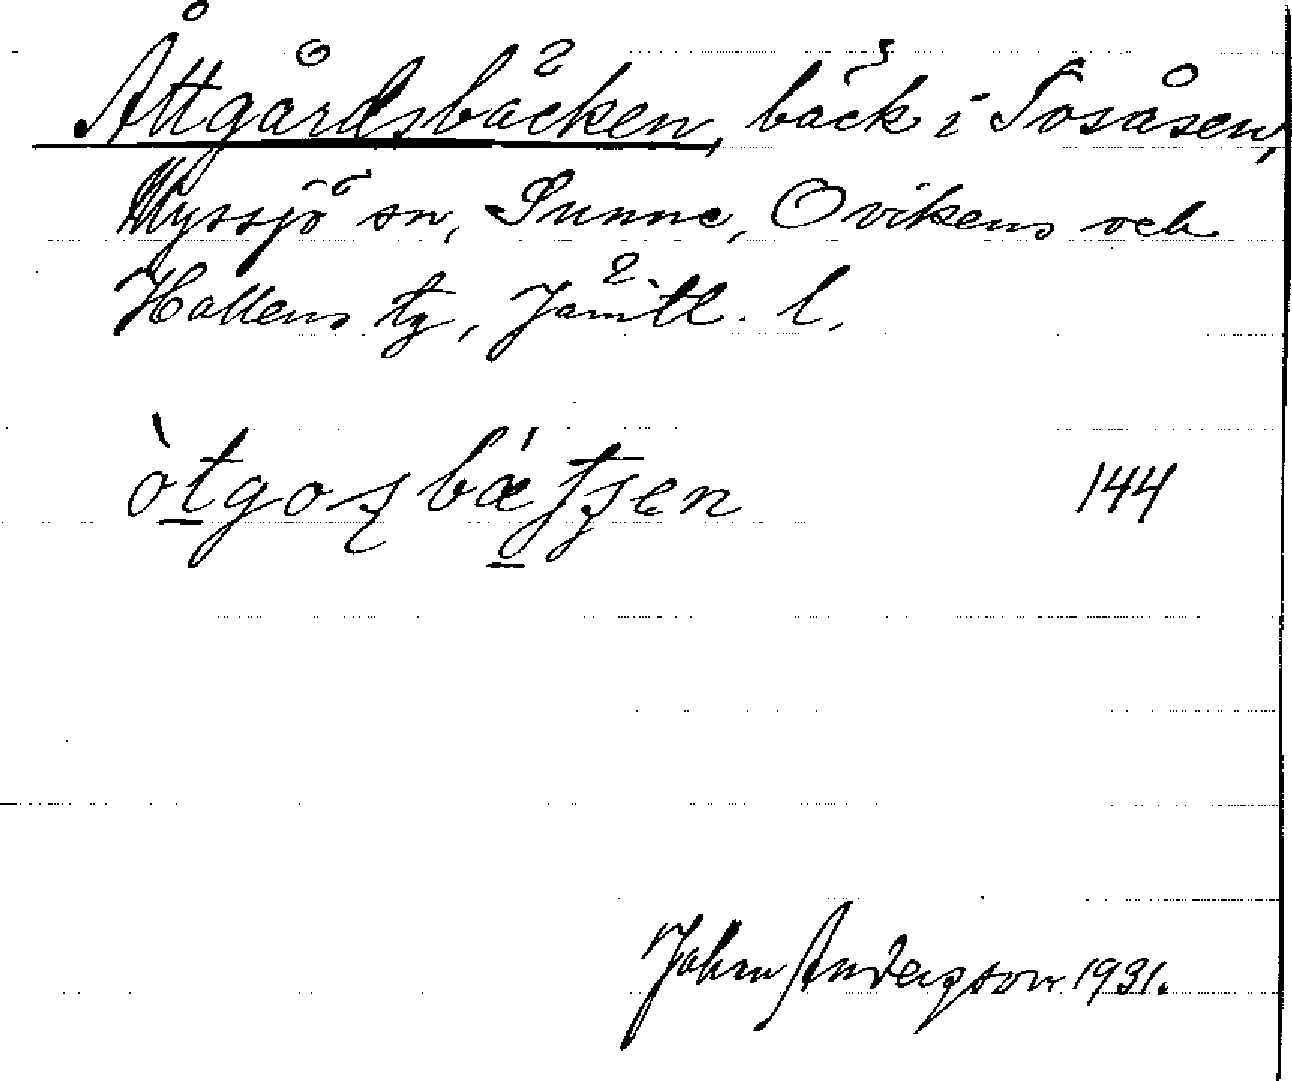 Åttgårdsbäcken, bäck i Tosåsen,
Myssjö sn, Sunne, Ovikens och
Hallens tg, Jämtl. l.
144
John Anderson 1931.